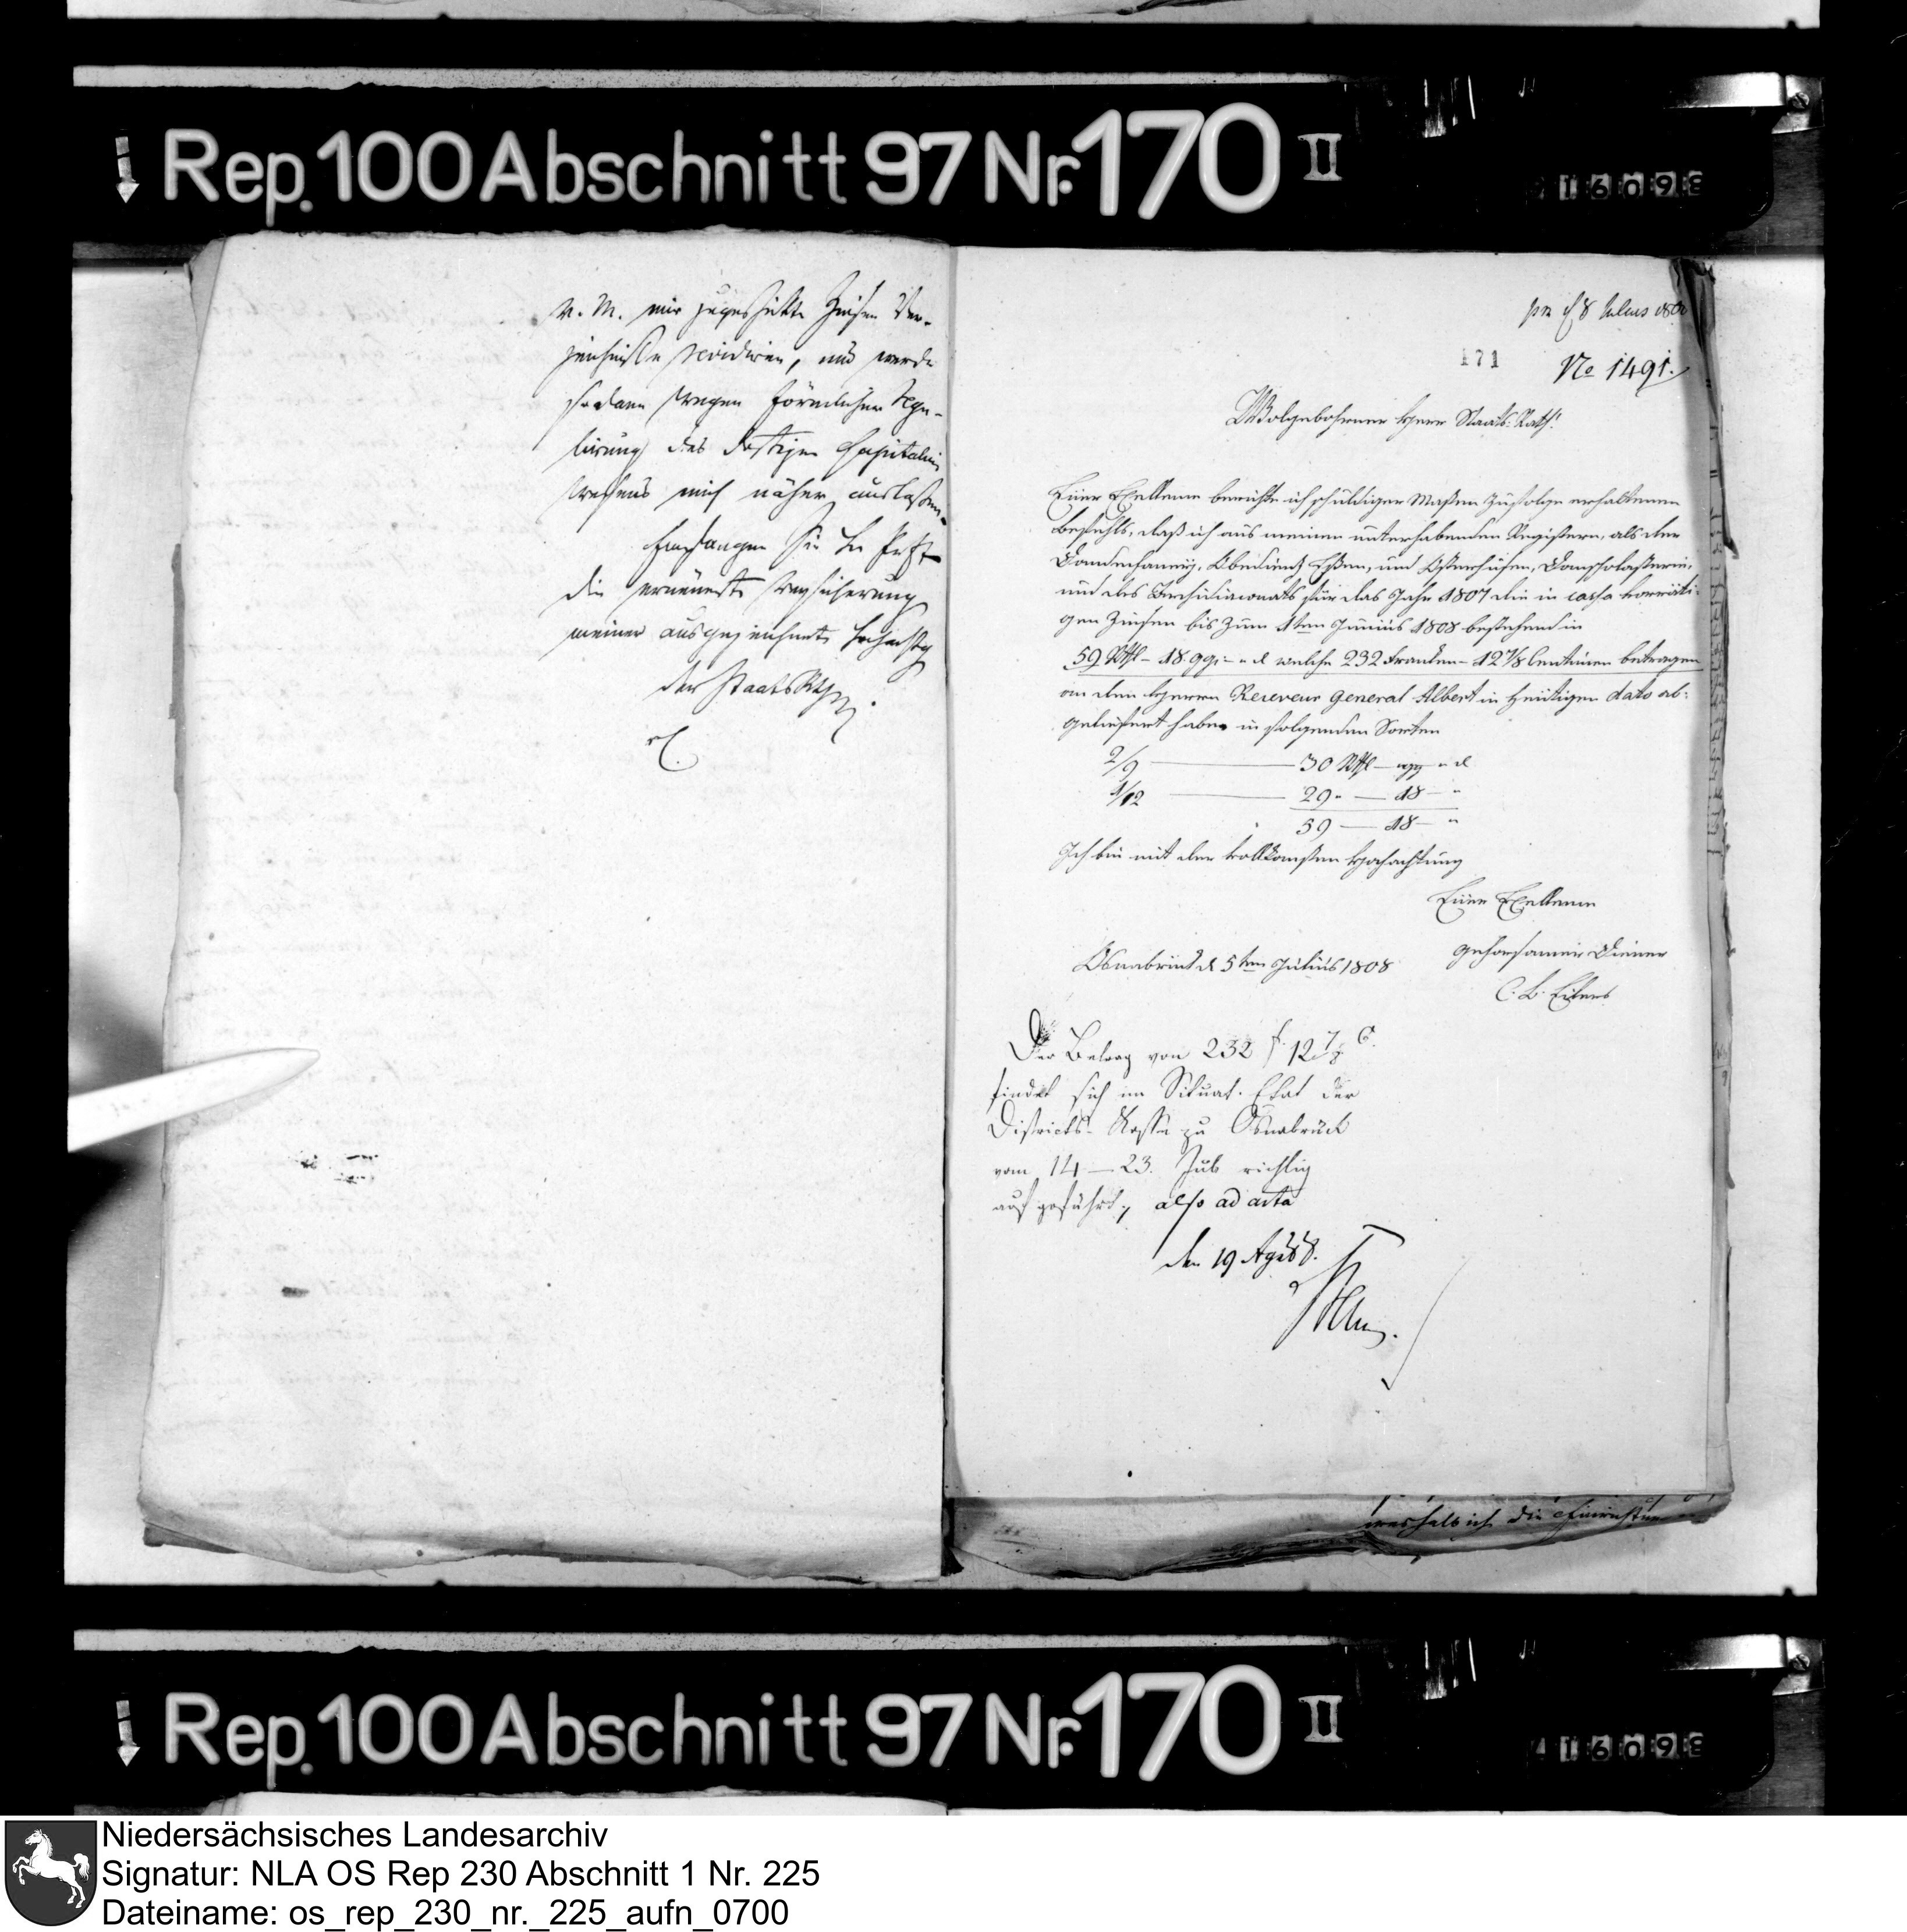 Rep. 100 Abschnitt 97 Nr. 170 II
16093
v. M. mir zugeschickte Zinsen Ver-
zeichniße revidiren, und werde
sodann wegen förmlicher Regu-
lirung des dortigen Capitalien
wesens mich näher auslaßen.
Empfangen Sie
die erneuerte Versicherung
meiner ausgezeichneten
der StaatsRth
171
No 1491.
Wolgebohrner Herr Staats-Rath!
Euer Exellence berichte ich schuldiger Maßen Zufolge erhaltenen
Befehls, daß ich aus meinen unterhabenden Registern, als der
Domdechaney, Obedienz Eßen, und Osterhusen, Domscholasterie,
und des Archidiaconats für das Jahr 1807 die in cassa vorräti-
gen Zinsen bis Zum 1ten Junius 1808 bestehend in
59 Rthl - 18 ggr - " d welche 232 Franken - 12 7/8 Centimen betragen
an den Herrn Receveur General Albert in heutigen dato ab-
geliefert habe in folgenden Sorten
30 Rthl — " gg " d
1/12 — 29 " — 18 — "
59 — 18 — "
Ich bin mit der vollkomsten Hochachtung
Euer Exellence
Osnabrück d 5ten Julius 1808
gehorsamer Diener
C. B. Eilers
Der Betrag von 232 f. 12 7/8 C.
findet sich im Situat. Etat der
Districts-Kasse zu Osnabrück
vom 14 — 23. Jul richtig
aufgeführt, also ad acta
den 19
weshalb ich die Einrichtun
Rep. 100 Abschnitt 97 Nr. 170 II
416093
Niedersächsisches Landesarchiv
Signatur: NLA OS Rep 230 Abschnitt 1 Nr. 225
Dateiname: os_rep_230_nr._225_aufn_0700